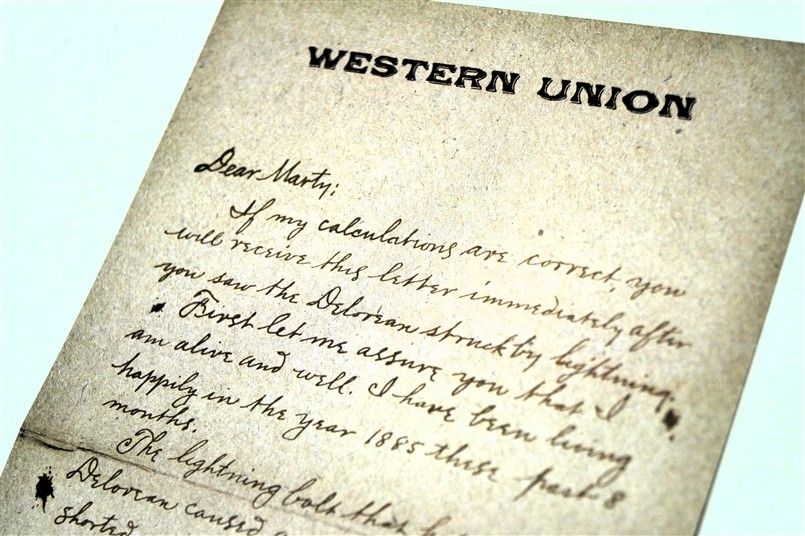 WESTERN UNION
Dear Marty:
If my calculations are correct, you
will receive this letter immediately after
you saw the Delorean struck by lightning.
First let me assure you that I
am alive and well. I have been living
happily in the year 1885 these past 8
months.
The lightning bolt that
Delorean caused
shorted